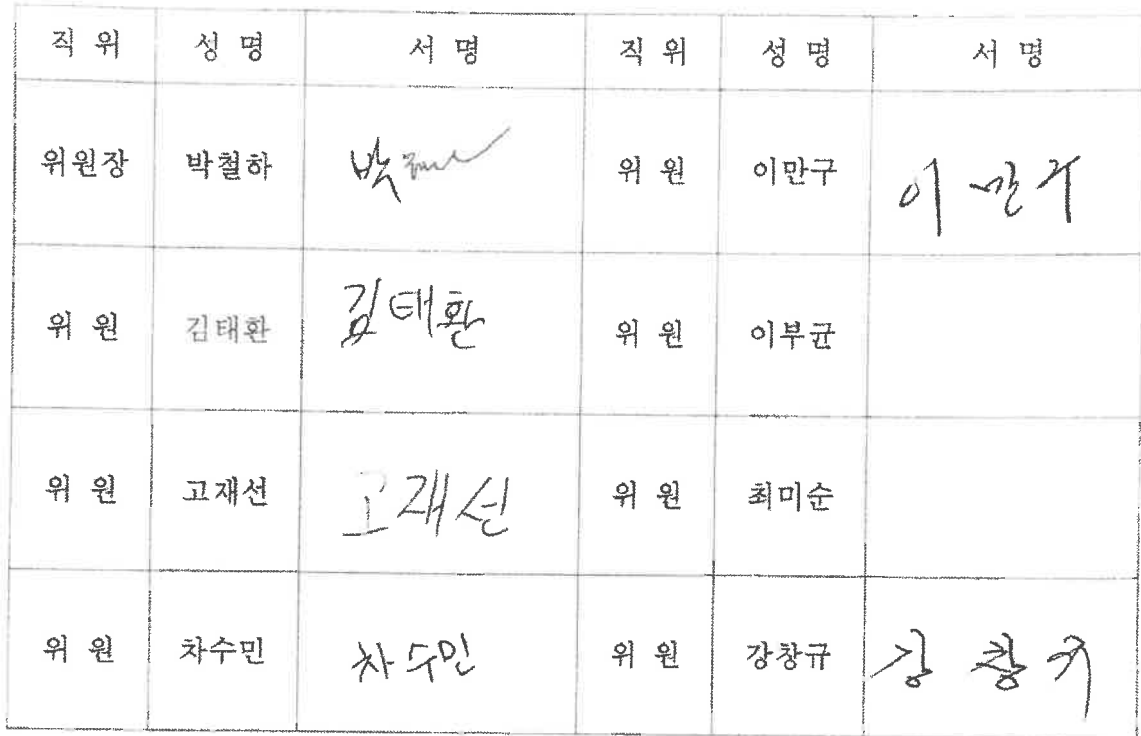 직 위 성 명 서 명 직 위 성 명 서 명
위원장 박철하 박 위 원 이만구 이만구
위 원 김태환 김태환 위 원 이부균
위 원 고재선 고재선 위 원 최미순
위 원 차수민 차수민 위 원 강창규 강창규